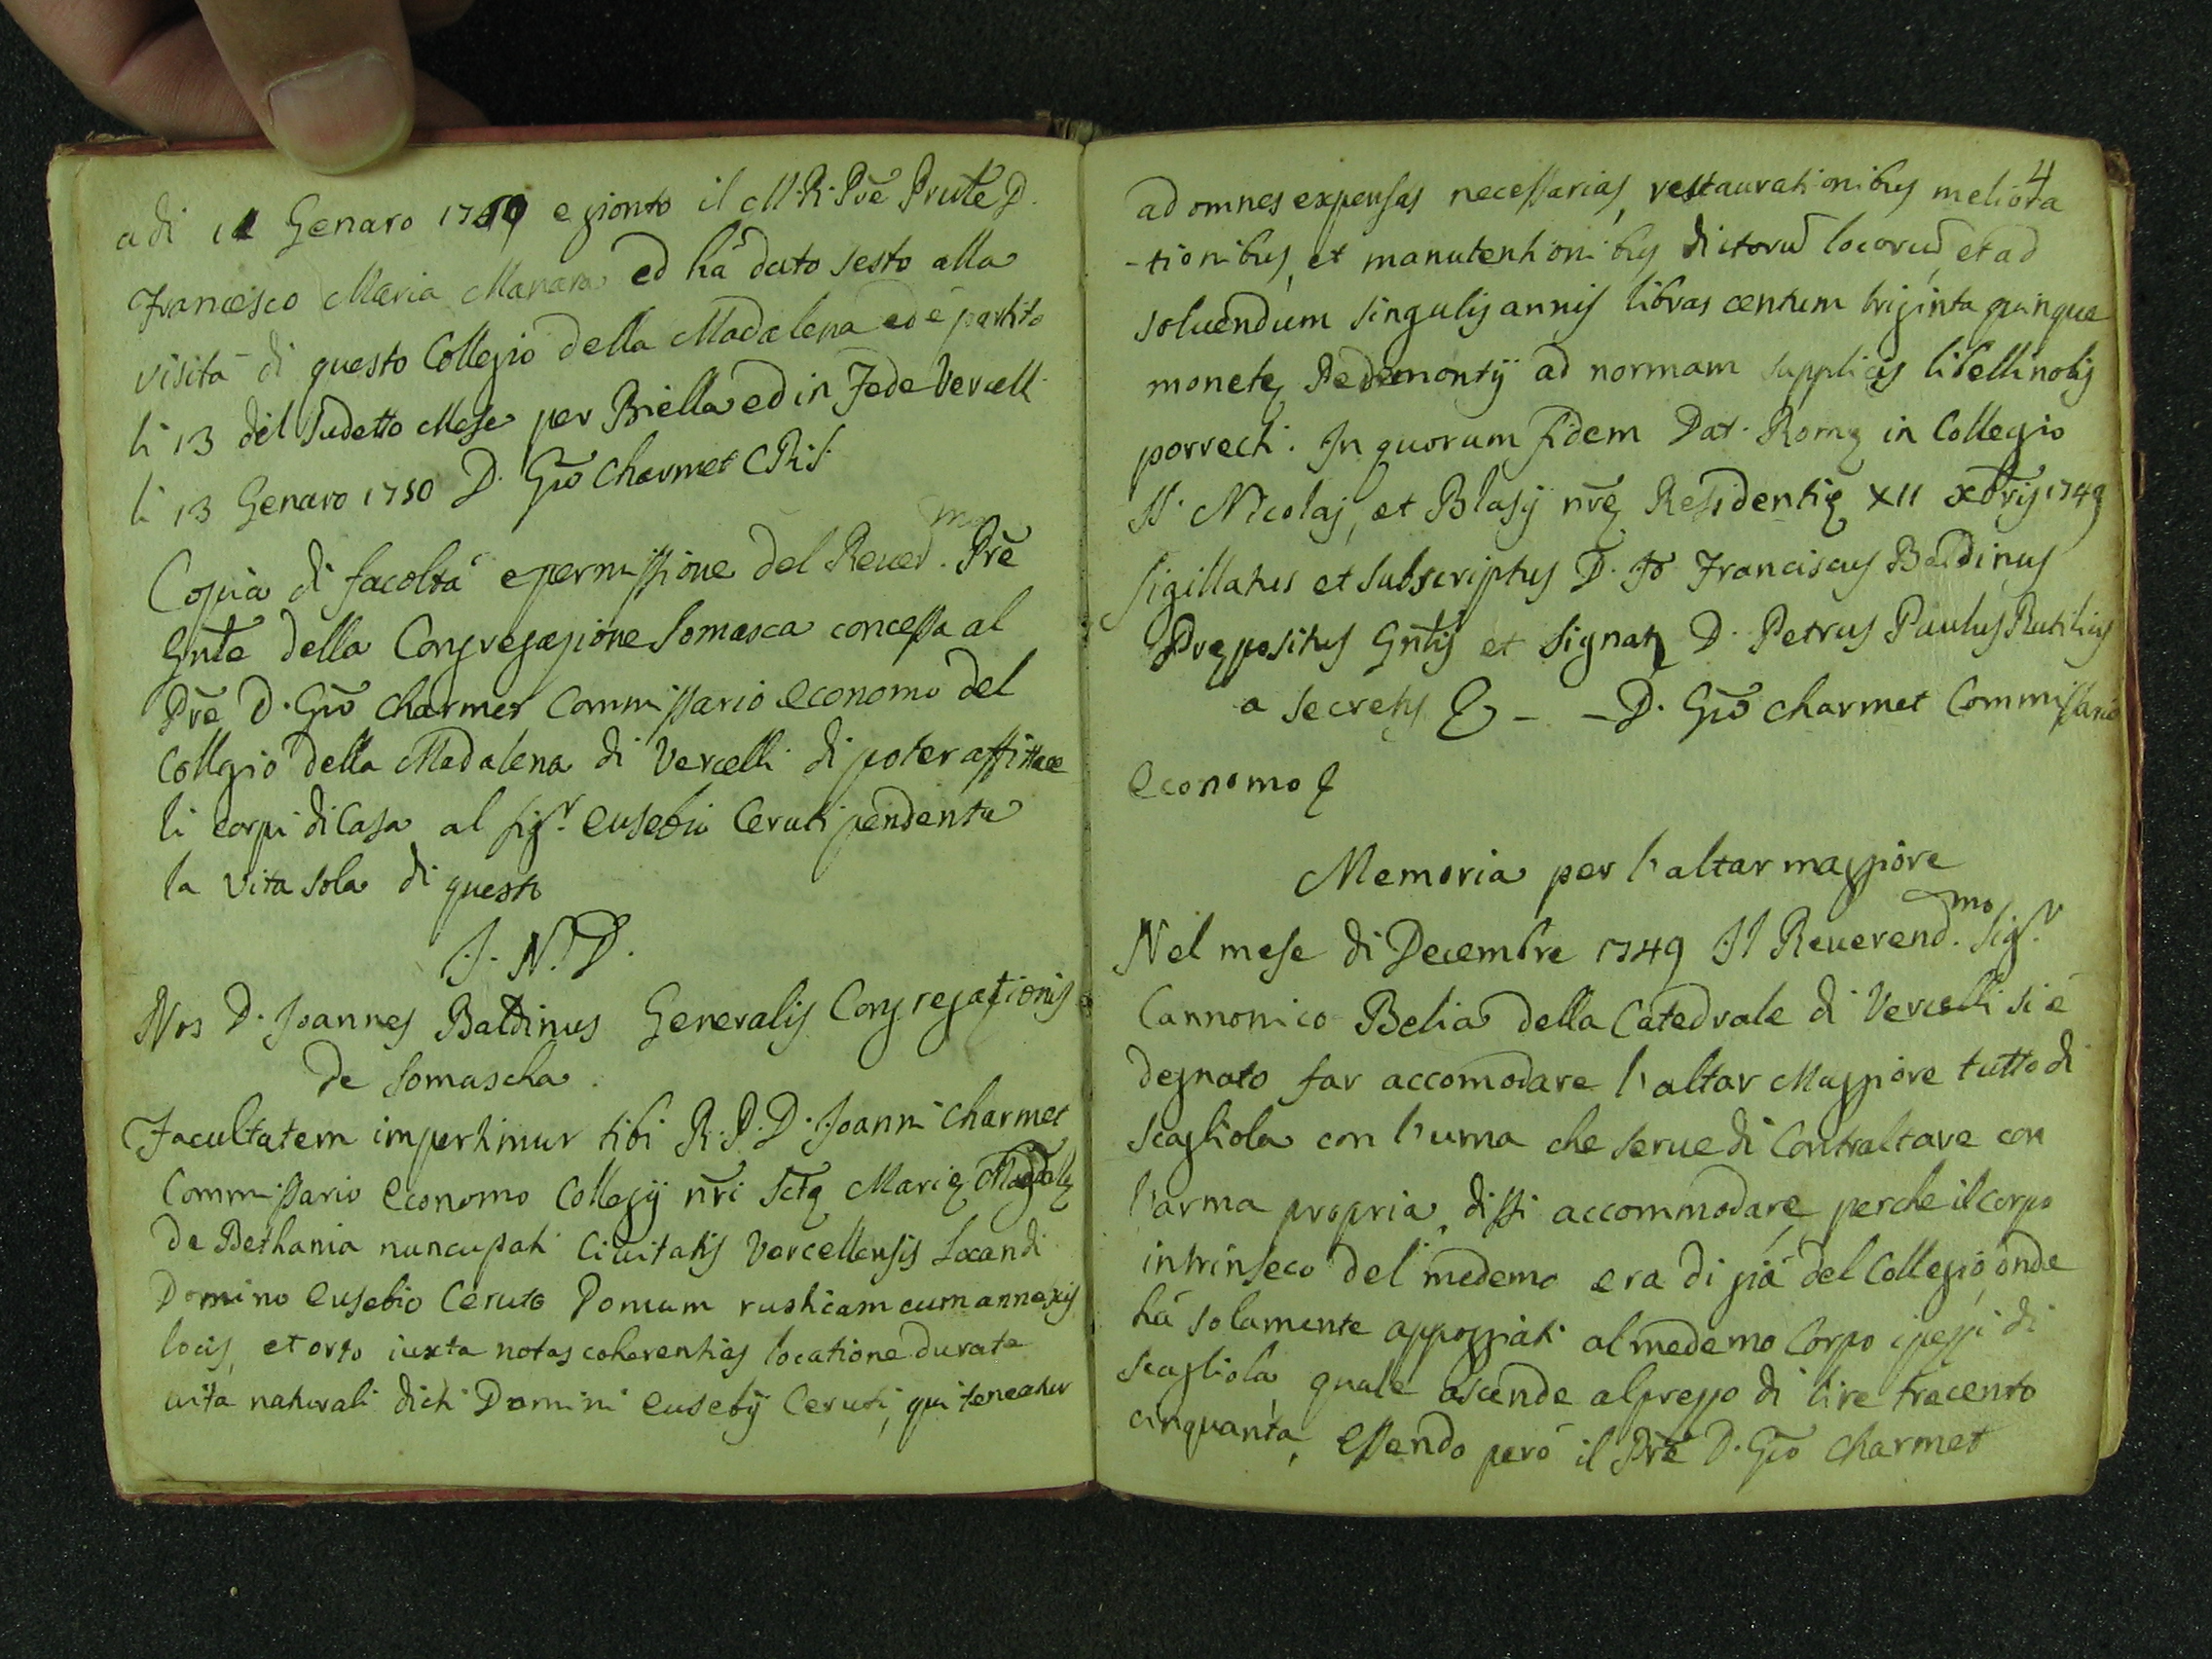 adi 11 Genaro 1750 e gionto il M. R. Pre Prule D.
Francesco Maria Manara ed hà dato sesto alla
visita di questo Collegio della Madalena ed è partito
li 13 del sudetto Mese per Biella ed in Fede Vercelli
li 13 Genaro 1750 D. Gio Charmet CRS.
Copia di facoltà e permissione del Reued.mo Pre
Gnle della Congregazione Somasca concessa al
Pre D. Gio Charmet Commissario economo del
Collegio della Madalena di Vercelli di poter affittare
li corpi di Casa al sig.r Eusebio Ceruti pendente
la vita sola di questo
I. N. D.
Nos D. Joannes Baldinus Generalis Congregationis
de Somascha.
Facultatem impertimur tibi R. P. D. Joanni Charmet
Commissario Economo Collegij nri Sctę Marię Magdalę
de Bethania nuncupati Ciuitatis Vercellensis Locandi
Domino Eusebio Ceruto Domum rusticam cum annexis
locis, et orto iuxta notas coherentias locatione durate
uita naturali dicti Domini Eusebij Ceruti, qui teneatur
4
ad omnes expensas necessarias, restaurationibus meliora
-tionibus, et manutentionibus dictorũ locorũ, et ad
soluendum singulis annis libras centum triginta quinque
monetę Pedemontij ad normam supplicis libelli nobis
porrecti. In quorum fidem Dat. Romę in Collegio
SS. Nicolaj, et Blasij nrę Residentię XII xbris 1749
Sigillatus et subscriptus D. Jo Franciscus Baldinus
Prępositus Gnlis et signat D. Petrus Paulus Rutilius
a secretis & - - D. Gio Charmet Commissario
Economo &
Memoria per l'altar maggiore
Nel mese di Decembre 1749 Il Reuerend.mo Sig.r
Cannonico Belia della Catedrale di Vercelli si è
degnato far accomodare l'altar Maggiore tutto di
scagliola con l'urna che serue di Contraltare con
l'arma propria, dissi accommodare, perche il corpo
intrinseco del medemo era di già del Collegio, onde
hà solamente appoggiati al medemo Corpo i pezzi di
scagliola, quale ascende al prezzo di lire trecento
cinquanta, Essendo però il Pre D. Gio Charmet